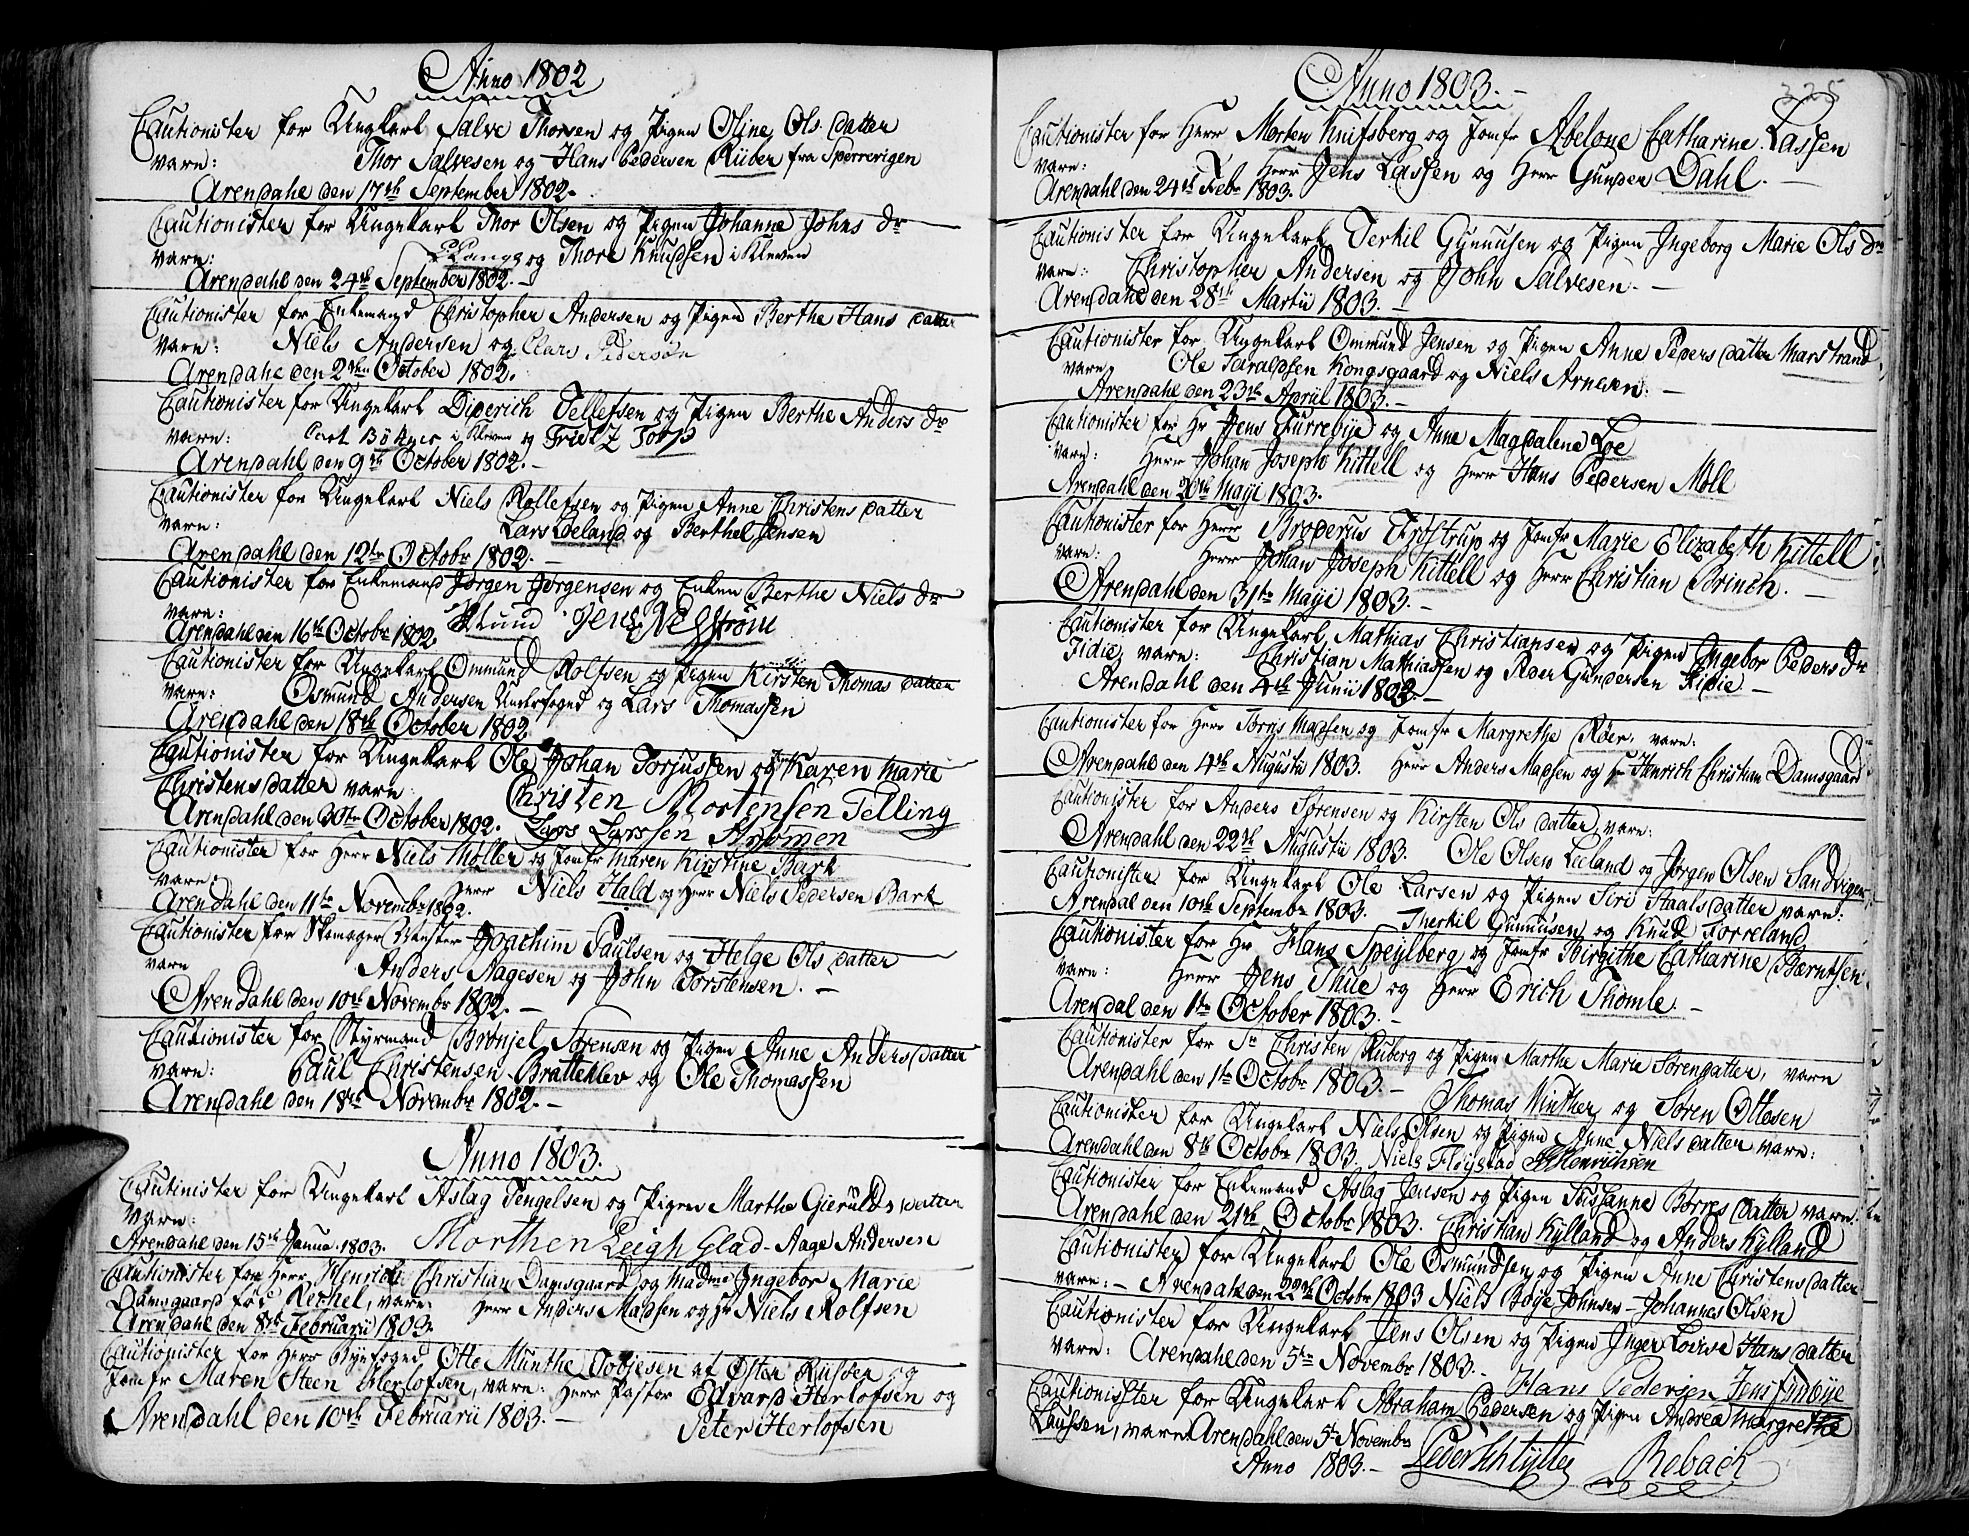 Anno 1802
Cautionister for Ungkarl Salve Thorsen og Pigen Oline Ols datter
vare: Thor Salvesen og Hans Pedersen Rüber fra Sperrevigen
Arendahl den 17de September 1802.
Cautionister for Ungekarl Thor Olsen og Pigen Johanne Johns dr
vare: og Thore Knudsen i Kleven
Arendahl den 24de September 1802.
Cautionister for Enkemand Christopher Andersen og Pigen Berthe Hans datter
vare: Niels Andersen og Clars Pedersøn
Arendahl den 2den October 1802.
Cautionister for Ungekarl Diderich Tellefsen og Pigen Berthe Anders dr
vare: Carl i Kleven og Fridz Torp
Arendahl den 9de October 1802.
Cautionister for Ungekarl Niels Rollefsen og Pigen Anne Christens datter
vare: Lars Loeland og Berthel Jensen
Arendahl den 12te Octobr 1802.
Cautionister for Enkemand Jørgen Jørgensen og Enken Berthe Niels dr
vare: Lund Jens Nelstrøm
Arendahl den 16de Octobr 1802.
Cautionister for Ungekarl Ommund Rolfsen og Pigen Kirsten Thomas datter
vare: Osmund Andersen Underfoged og Lars Thomassen
Arendahl den 18de October 1802
Cautionister for Ungekarl Ole Johan Torjussen og Karen Marie
Christensdatter vare Christen Mortensen Telling
Arendahl den 20de October 1802. Lars Larssen
Cautionister for Herr Niels Møller og Jomfr Maren Kirstine Bark
vare: Herr Niels Hald og Herr Niels Pedersen Bark
Arendahl den 11te Novembr 1802.
Cautionister for Skomager Mester Joachim Paulsen og Helge Ols datter
vare Anders Aagesen og John Torstensen.
Arendahl den 10de Novembr 1802.
Cautionister for Styrmand Brønjel Sørensen og Pigen Anne Anders datter
vare: Paul Christensen Bratteklev og Ole Thomassen
Arendahl den 18de Novembr 1802.
Anno 1803.
Cautinister for Ungekarl Aslag Tengelsen og Pigen Marthe Gierulds datter
vare: Morthen Leigh Glad - Aage Andersen
Arendahl den 15de Janua. 1803.
Cautionister for Herr Henrich Christian Damsgaard og Madme Ingebor Marie
Damsgaard fød Rechel, vare: Herr Anders Madsen og Hr Niels Rolfsen
Arendahl den 8de Februarii 1803.
Cautionister for Herr Byefoged Otte Munthe Tobiesen af Øster Riisøer og
Jomfr Maren Steen Herlofsen, vare: Herr Pastor Edvard Herlofsen og
Arendahl den 10de Februarii 1803. Peter Herlofsen
Anno 1803.
325
Cautionister for Herr Morten Knifsberg og Jomfr Abelone Catharine Lassen
vare: Herr Jens Lassen og Herr Gunder Dahl.
Arendahl den 24de Febr 1803.
Cautionister for Ungekarl Terkil Gunnusen og Pigen Ingeborg Marie Ols dr
vare: Christopher Andersen og John Salvesen.
Arendahl den 28de Martii 1803.
Cautionister for Ungekarl Ommund Jensen og Pigen Anne Peders datter Marstrand
vare Ole Taraldsen Kongsgaard og Niels Arnesen:
Arendahl den 23de April 1803.
Cautionister for Hr Jens Furrebye og Anne Magdalene Loe
vare: Herr Johan Joseph Kittell og Herr Hans Pedersen Moll
Arendahl den 20de Maji 1803.
Cautionister for Herr Broderus Trydstrup og Jomfr Marie Elizabeth Kittell
vare: Herr Johan Joseph Kittell og Herr Christian Brinch.
Arendahl den 31te Maji 1803.
Cautionister for Ungekarl Mathias Christiansen og Pigen Ingebor Peders dr
Fidie, vare: Christian Mathiassen og Peder Gundersen Fidie
Arendahl den 4de Junii 1802.
Cautionister for Herr Torris Madsen og Jomfr Margrethe Røer, vare:
Arendahl den 4de Augustii 1803. Herr Anders Madsen og Hr Henrich Christian Damsgaard
Cautionister for Anders Sørensen og Kirsten Ols datter, vare:
Arendahl den 22de Augustii 1803. Ole Olsen Leeland og Jørgen Olsen Sandvigen
Cautionister for Ungekarl Ole Larsen og Pigen Siri Staalsdatter vare:
Arendal den 10de Septembr 1803. Therkil Gunnusen og Knud Torreland
Cautionister for Hr. Hans Speilberg og Jomfr Birgithe Catharine Bærntsen
vare: Herr Jens Thue og Herr Erich Thomle.
Arendal den 1te October 1803.
Cautionister for Sr Christen Ruberg og Pigen Marthe Marie Sørendatter, vare
Arendahl den 1te Octobr 1803. Thomas Winther og Søren Ottesen
Cautionister for Ungekarl Niels Olsen og Pigen Anne Niels datter vare:
Arendahl den 8de Octobr 1803. Niels Fløystad Henrichsen
Cautionister for Enkemand Aslag Jensen og Pigen Susanne Børres datter vare:
Arendahl den 21de Octobr 1803. Christian Kylland og Anders Kylland
Cautionister for Ungekarl Ole Osmundsen og Pigen Anne Christens datter
vare: - Arendahl den 22de Octobr 1803 Niels Boye Johnsen - Johannes Olsen
Cautionister for Ungekarl Jens Olsen og Pigen Inger Lovise Hans datter
vare: Arendahl den 5te Novembr 1803. Hans Pedersen Jens Finbye
Cautionister for Ungekarl Abraham Pedersen og Pigen Andrea Margrethe
Lausen, vare Arendahl den 5te Novembr Peder Schlytter Rebach
Anno 1803.